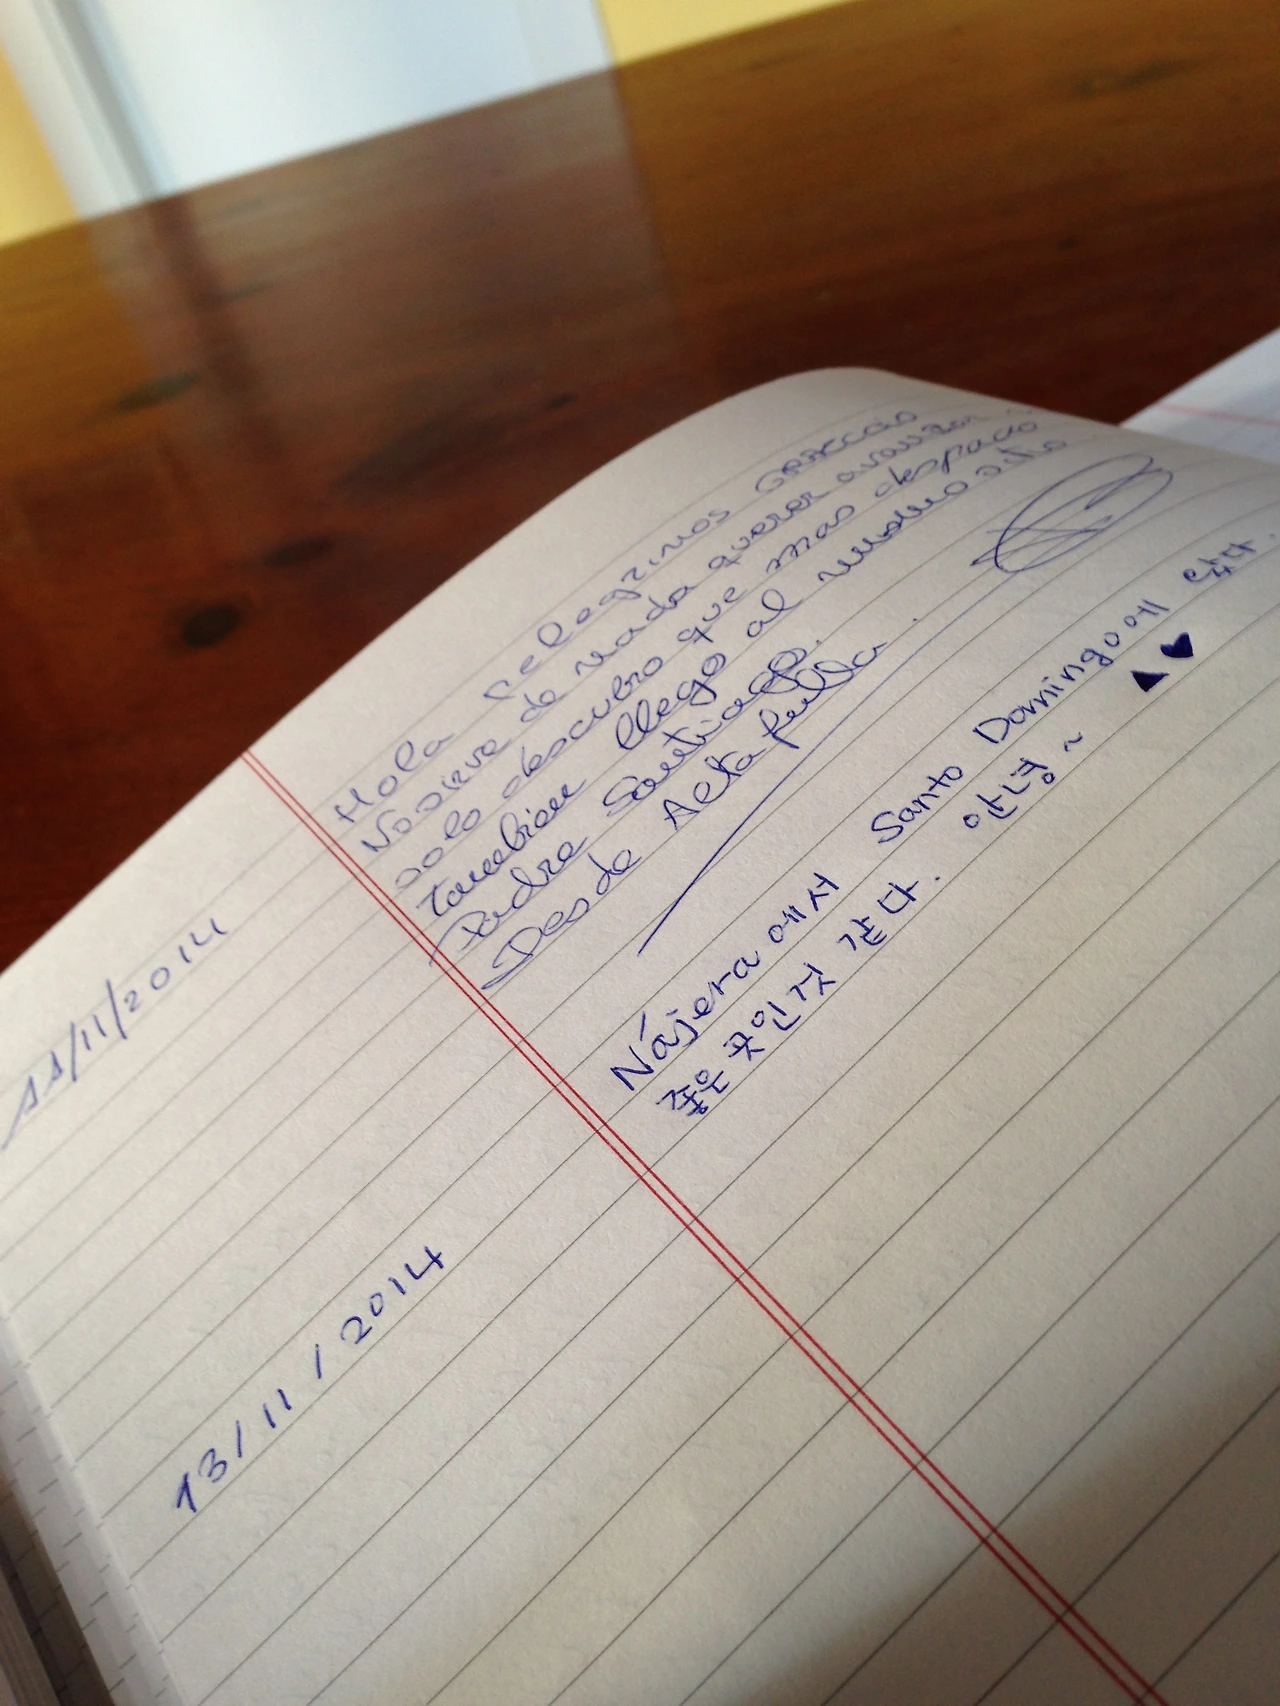 11/11/2014
Hola pelegrinos Graccais
No sirve de nada querer avanzar
solo descubro que mas despacio
tambien llego al mismo sitio
Padre Santiago.
Desde Aeta fulla.
13/11/2014
Nájera에서 Santo Domingo에 왔다.
좋은 곳인것 같다. 안녕~